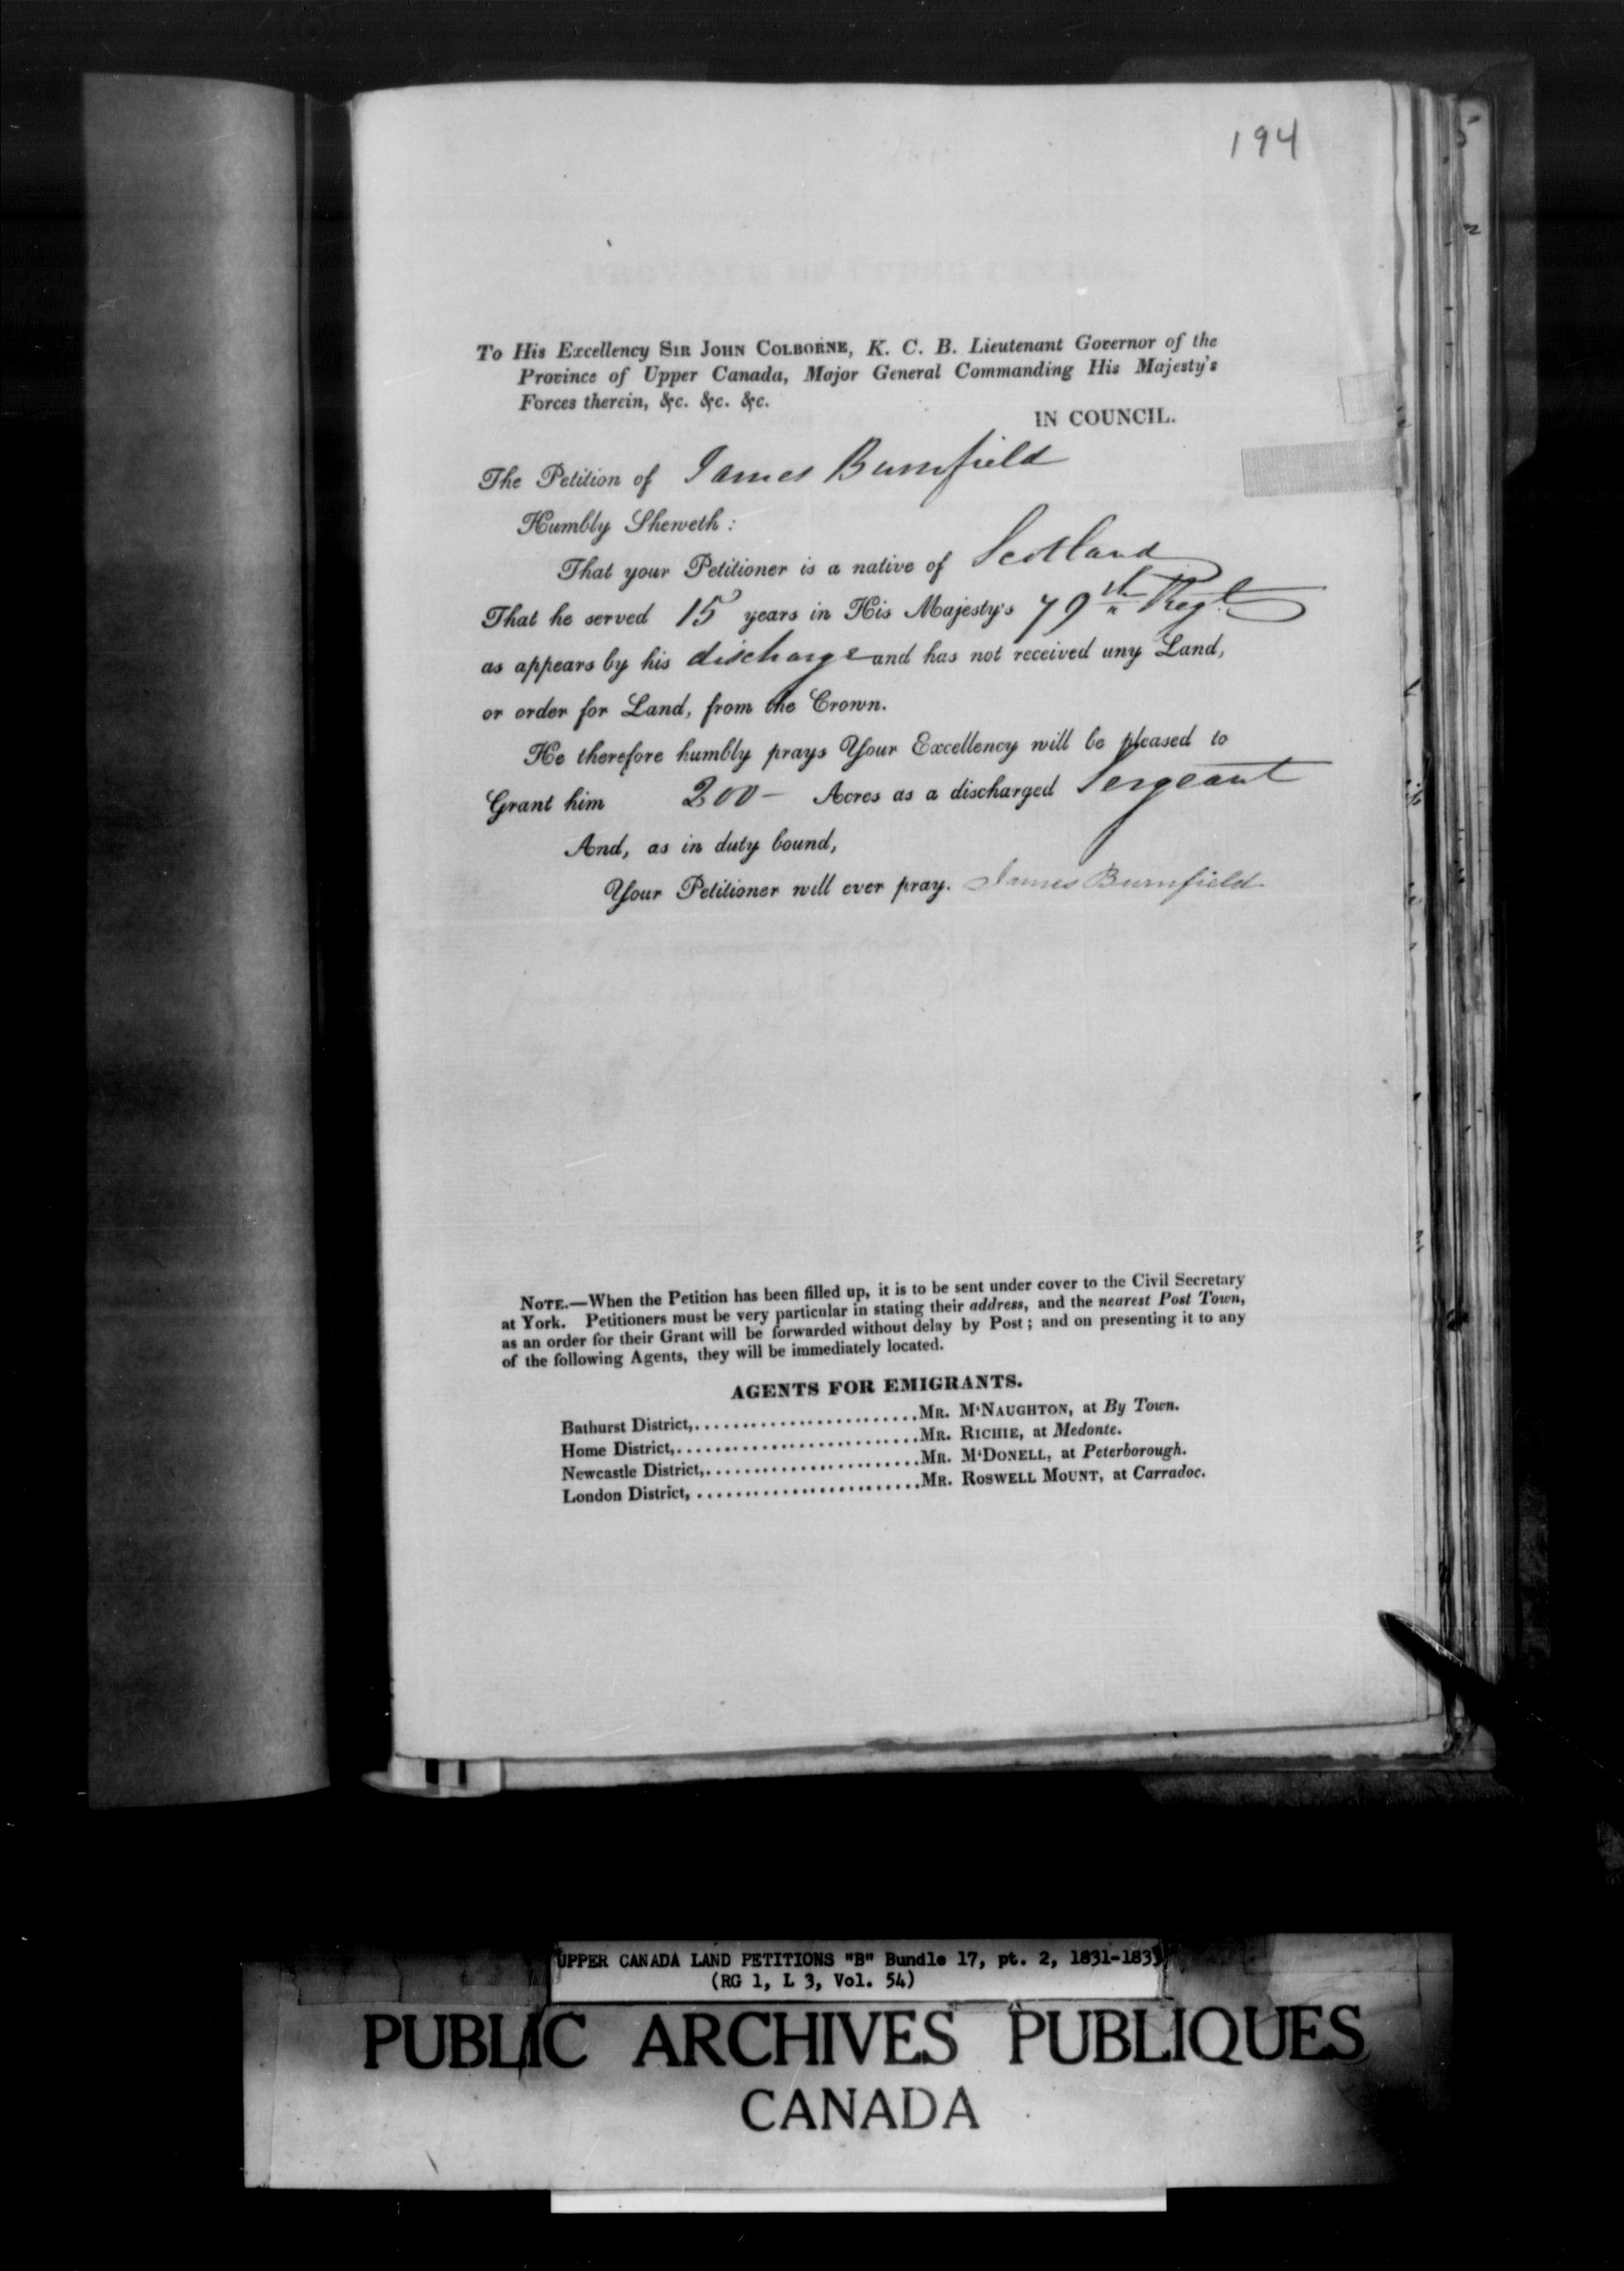 194
To His Excellency SIR JOHN COLBORNE, K. C. B. Lieutenant Governor of the
Province of Upper Canada, Major General Commanding His Majesty's
Forces therein, &c. &c. &c.
IN COUNCIL.
The Petition of James Burnfield
Humbly Sheweth:
That your Petitioner is a native of Scotland
That he served 15 years in His Majesty's 79th Regt
as appears by his discharge and has not received any Land,
or order for Land, from the Crown.
He therefore humbly prays Your Excellency will be pleased to
Grant him 200- Acres as a discharged Sergeant
And, as in duty bound,
Your Petitioner will ever pray. James Burnfield
NOTE.—When the Petition has been filled up, it is to be sent under cover to the Civil Secretary
at York. Petitioners must be very particular in stating their address, and the nearest Post Town,
as an order for their Grant will be forwarded without delay by Post; and on presenting it to any
of the following Agents, they will be immediately located.
AGENTS FOR EMIGRANTS.
Bathurst District,........................MR. M'NAUGHTON, at By Town.
Home District,..........................MR. RICHIE, at Medonte.
Newcastle District,.......................MR. M'DONELL, at Peterborough.
London District, ........................MR. ROSWELL MOUNT, at Carradoc.
UPPER CANADA LAND PETITIONS "B" Bundle 17, pt. 2, 1831-1833
(RG 1, L 3, Vol. 54)
PUBLIC ARCHIVES PUBLIQUES
CANADA